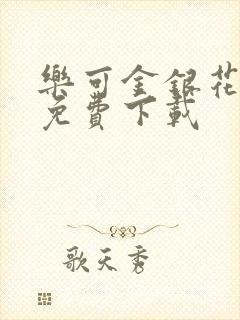 樂可金銀花
免費下載
歌天秀